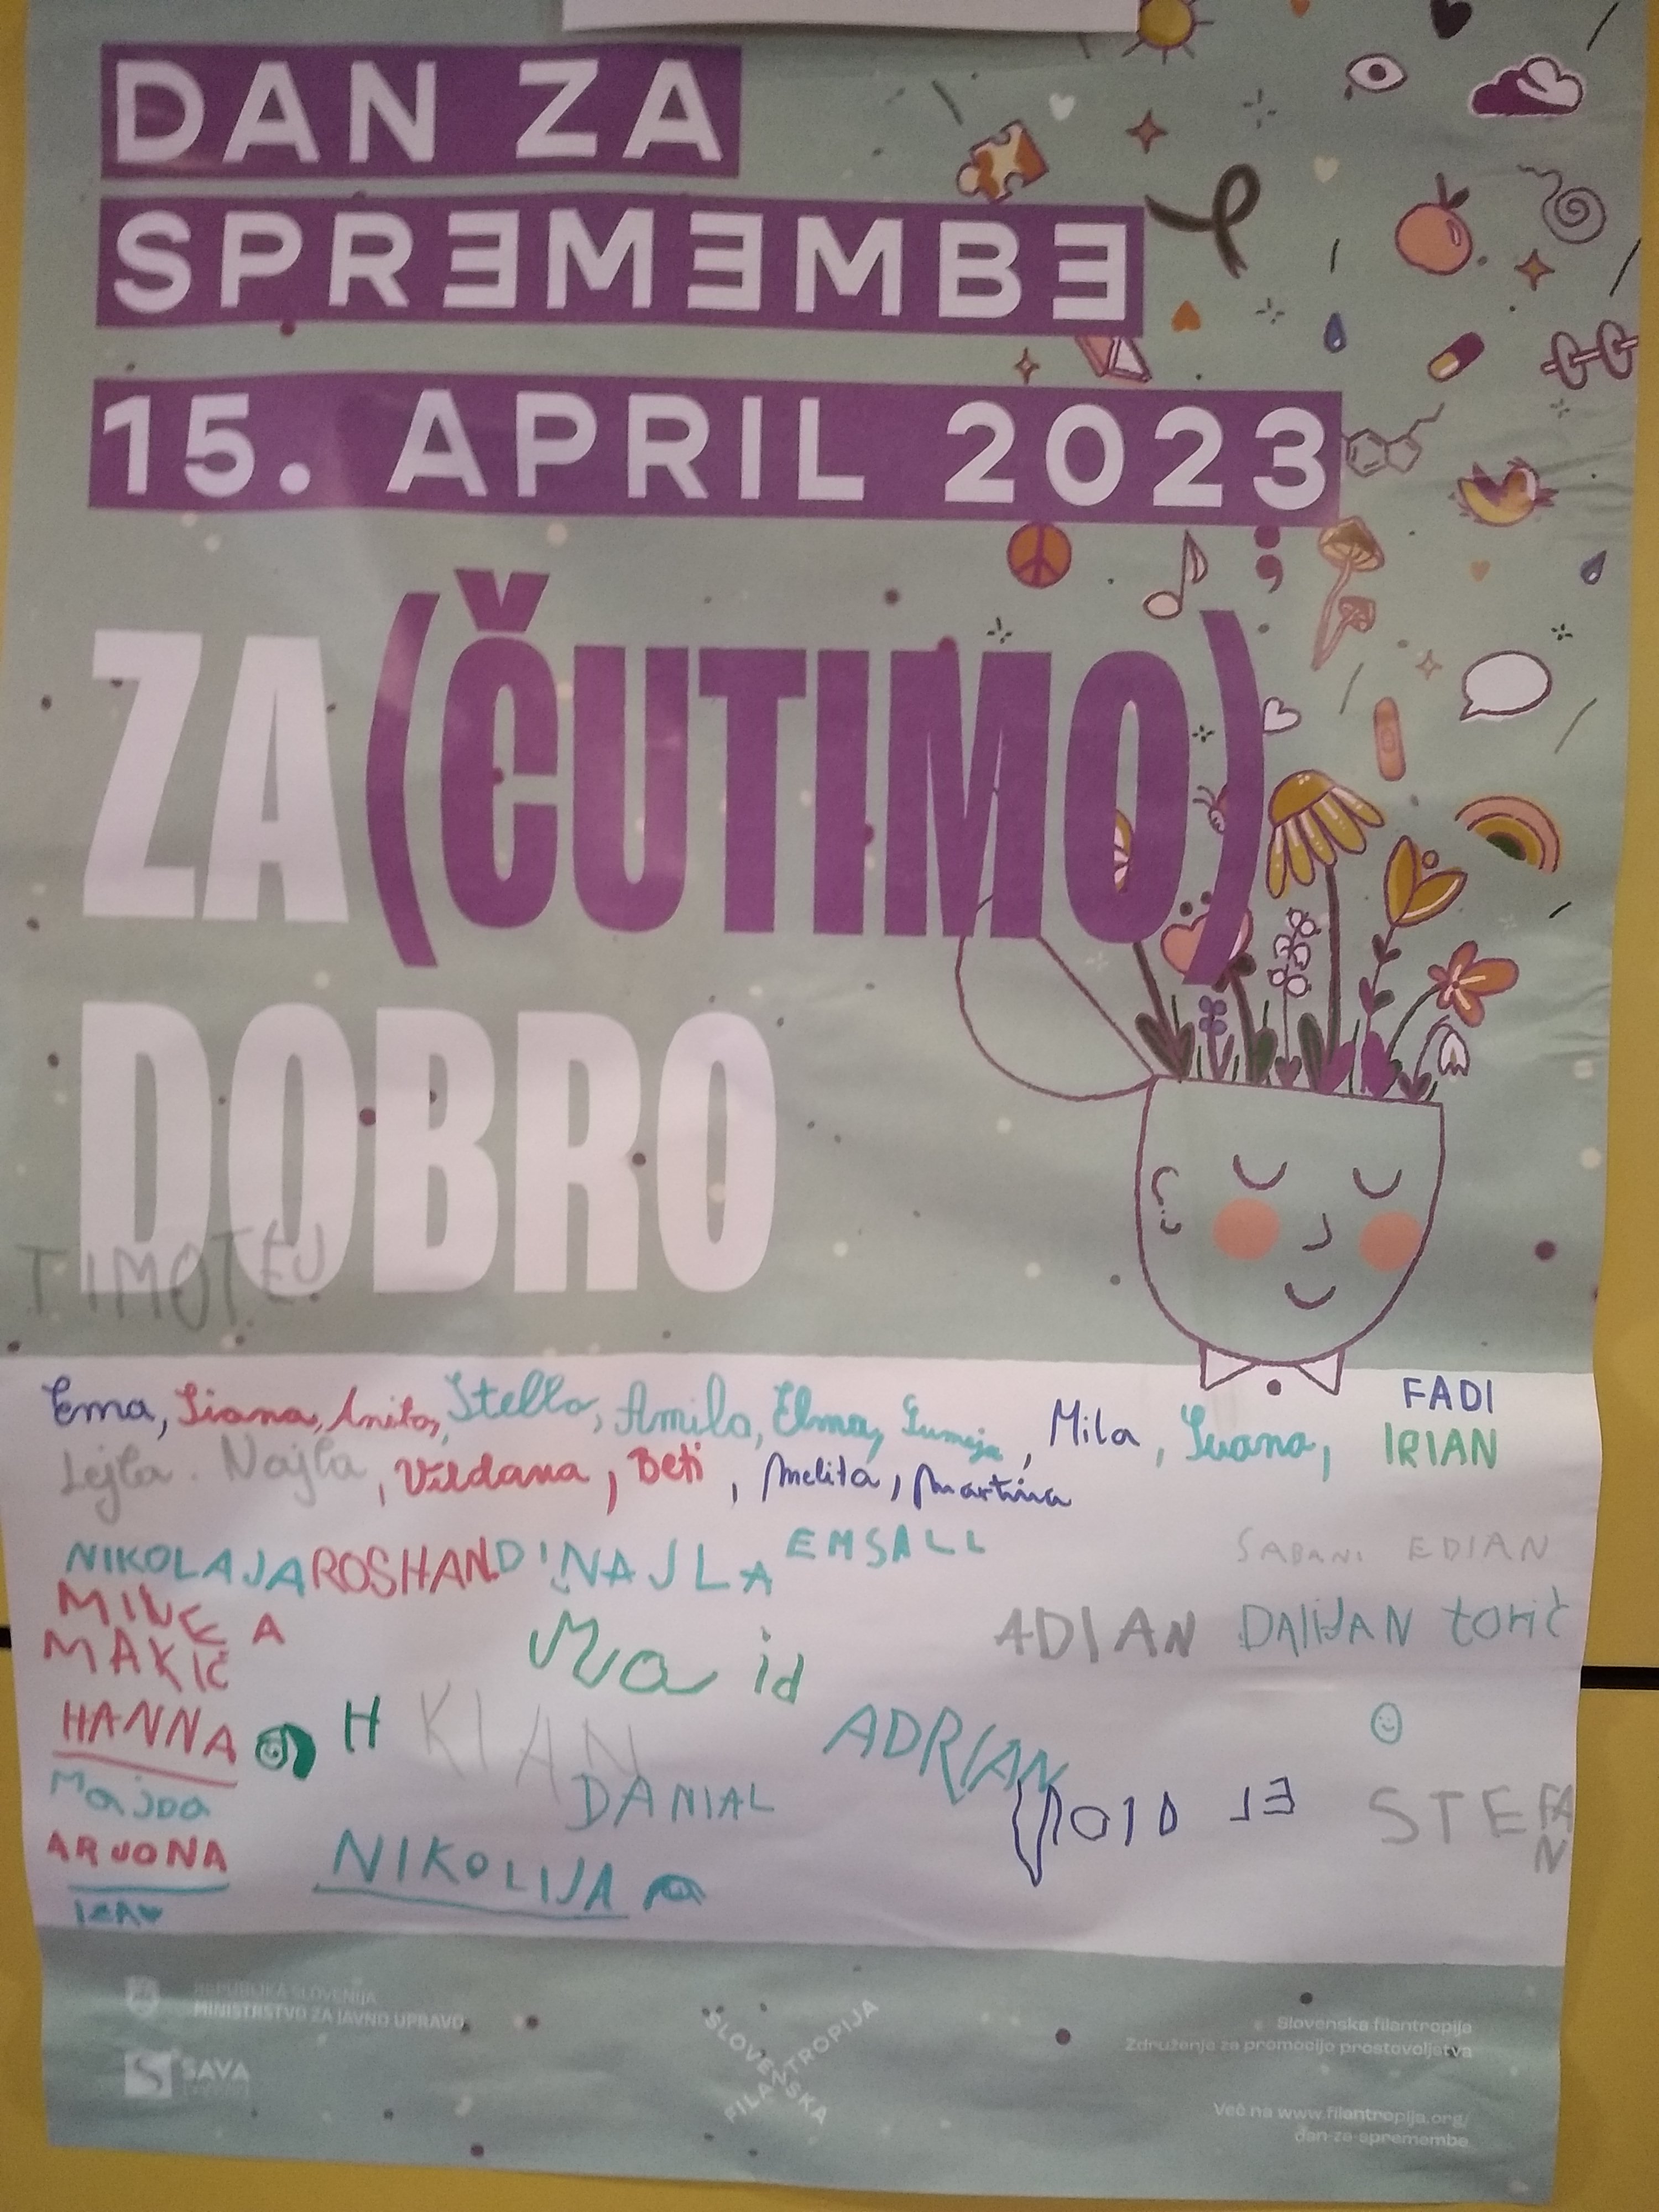 DAN ZA
SPREMEMBE
15. APRIL 2023
ZA(ČUTIMO)
DOBRO
TIMOTEJ
Ema, Liana, Anita, Stella, Amila, Elma, Sumeja, Mila, Ivana, FADI
Lejla. Najla, Vildana, Beti, Melita, Martina IRIAN
NIKOLAJA ROSHAN D! NAJLA EMSALL
SABANI EDIAN
MINEA
MAKIĆ
ADIAN DALIJAN torić
HANNA H KIAN ADRIAN
Majda DANIAL
STEFAN
ARJONA NIKOLIJA
REPUBLIKA SLOVENIJA
MINISTRSTVO ZA JAVNO UPRAVO
SAVA
SLOVENSKA
FILANTROPIJA
Slovenska filantropija
Združenje za promocijo prostovoljstva
Več na www.filantropija.org/
dan-za-spremembe